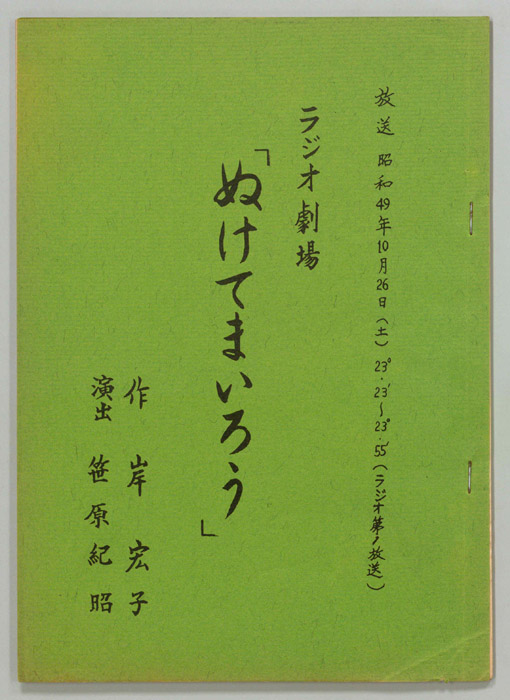 放送 昭和49年10月26日(土)23°・23′〜23°・55′(ラジオ第1放送)
ラジオ劇場
「ぬけてまいろう」
作 岸 宏子
演出 笹原紀昭